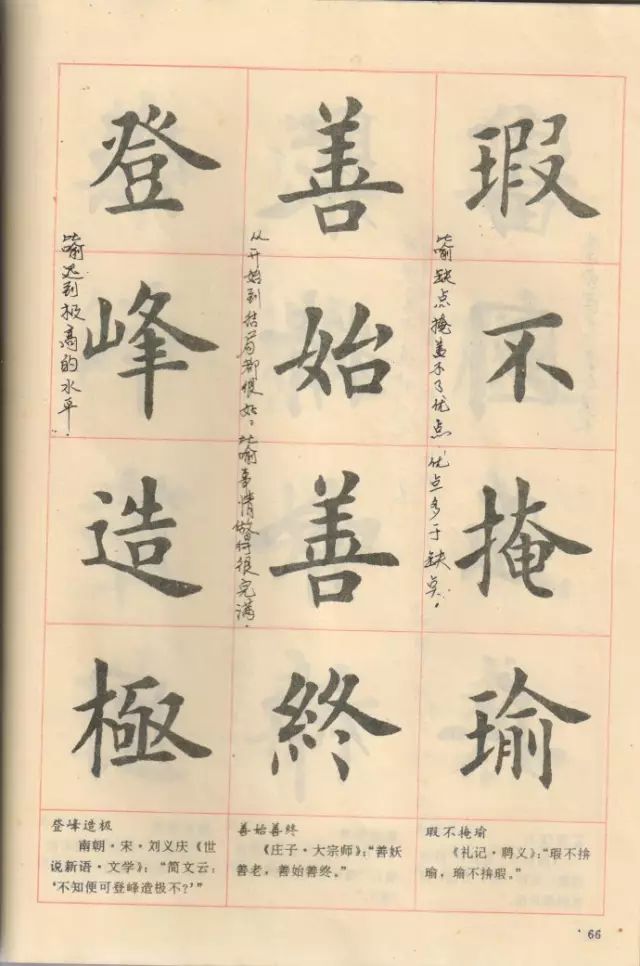 瑕不掩瑜
比喻缺点掩盖不了优点,优点多于缺点。
善始善終
从开始到结局都很好。比喻事情做得很完满。
登峰造極
比喻达到极高的水平。
瑕不掩瑜
《礼记·聘义》:“瑕不揜
瑜,瑜不揜瑕。”
善始善终
《庄子·大宗师》:“善妖
善老,善始善终。”
登峰造极
南朝·宋·刘义庆《世
说新语·文学》:“简文云:
‘不知便可登峰造极不?’”
66